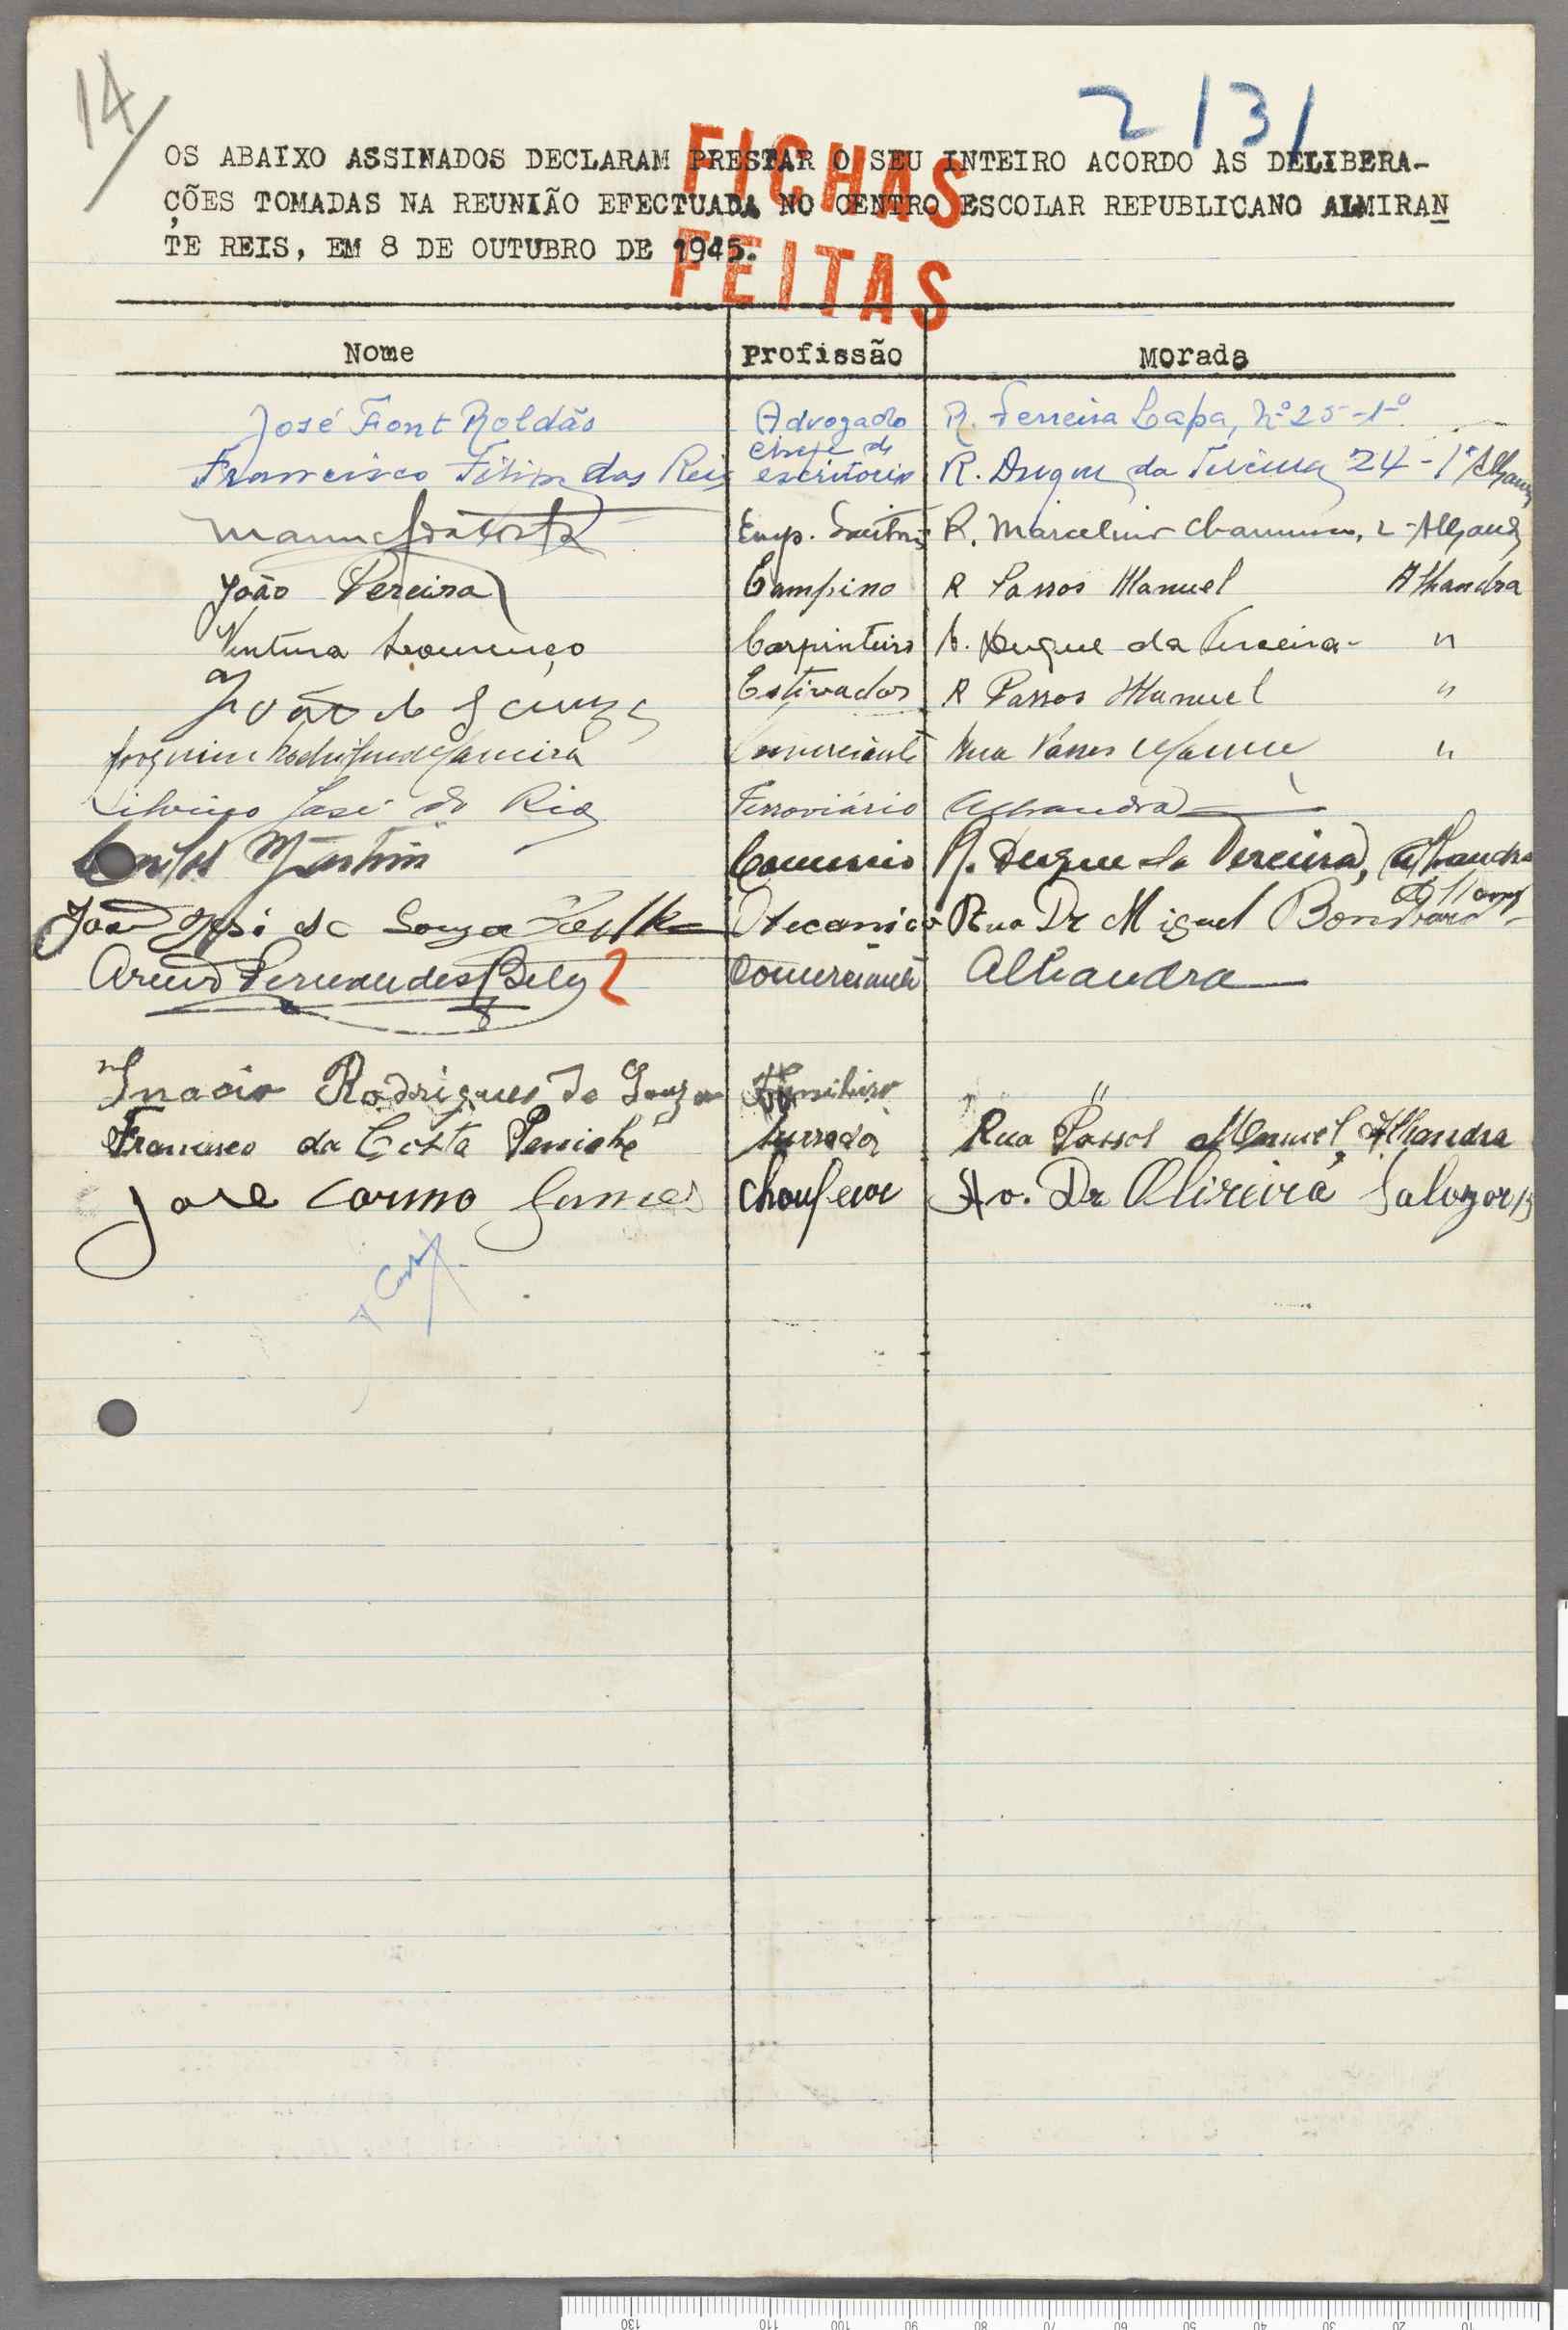 14
2131
FICHAS
FEITAS
OS ABAIXO ASSINADOS DECLARAM PRESTAR O SEU INTEIRO ACORDO AS DELIBERA-
ÇÕES TOMADAS NA REUNIÃO EFECTUADA NO CENTRO ESCOLAR REPUBLICANO ALMIRAN
TE REIS, EM 8 DE OUTUBRO DE 1945.
Nome Profissão Morada
José Font Roldãs Advogado R. Ferreira Lapa, Nº 25-1º
Francisco Filipe das Reis chefe de escritorio R. Duque da Terceira 24-1º
Manuel Batista Emp. R. Marcelino 2-
João Pereira Campino R Passos Manuel Alhandra
Ventura Lourenço Carpinteiro C. Duque da Terceira - "
João de Souza Estivador R Passos Manuel "
Joaquim Comerciante Rua Passos Manuel "
José do Rio Ferroviário Alhandra
Martins Comercio R. Duque da Terceira, Alhandra
João José de Souza Mecanico Rua Dr Miguel Bombarda
Fernandes 2 Comerciante Alhandra
Inacio Rodrigues de Souza "
Francisco da Costa Peniche Surrador Rua Passos Manuel, Alhandra
Jose Carmo Gomes Choufeur Av. Dr Olireira Salazar